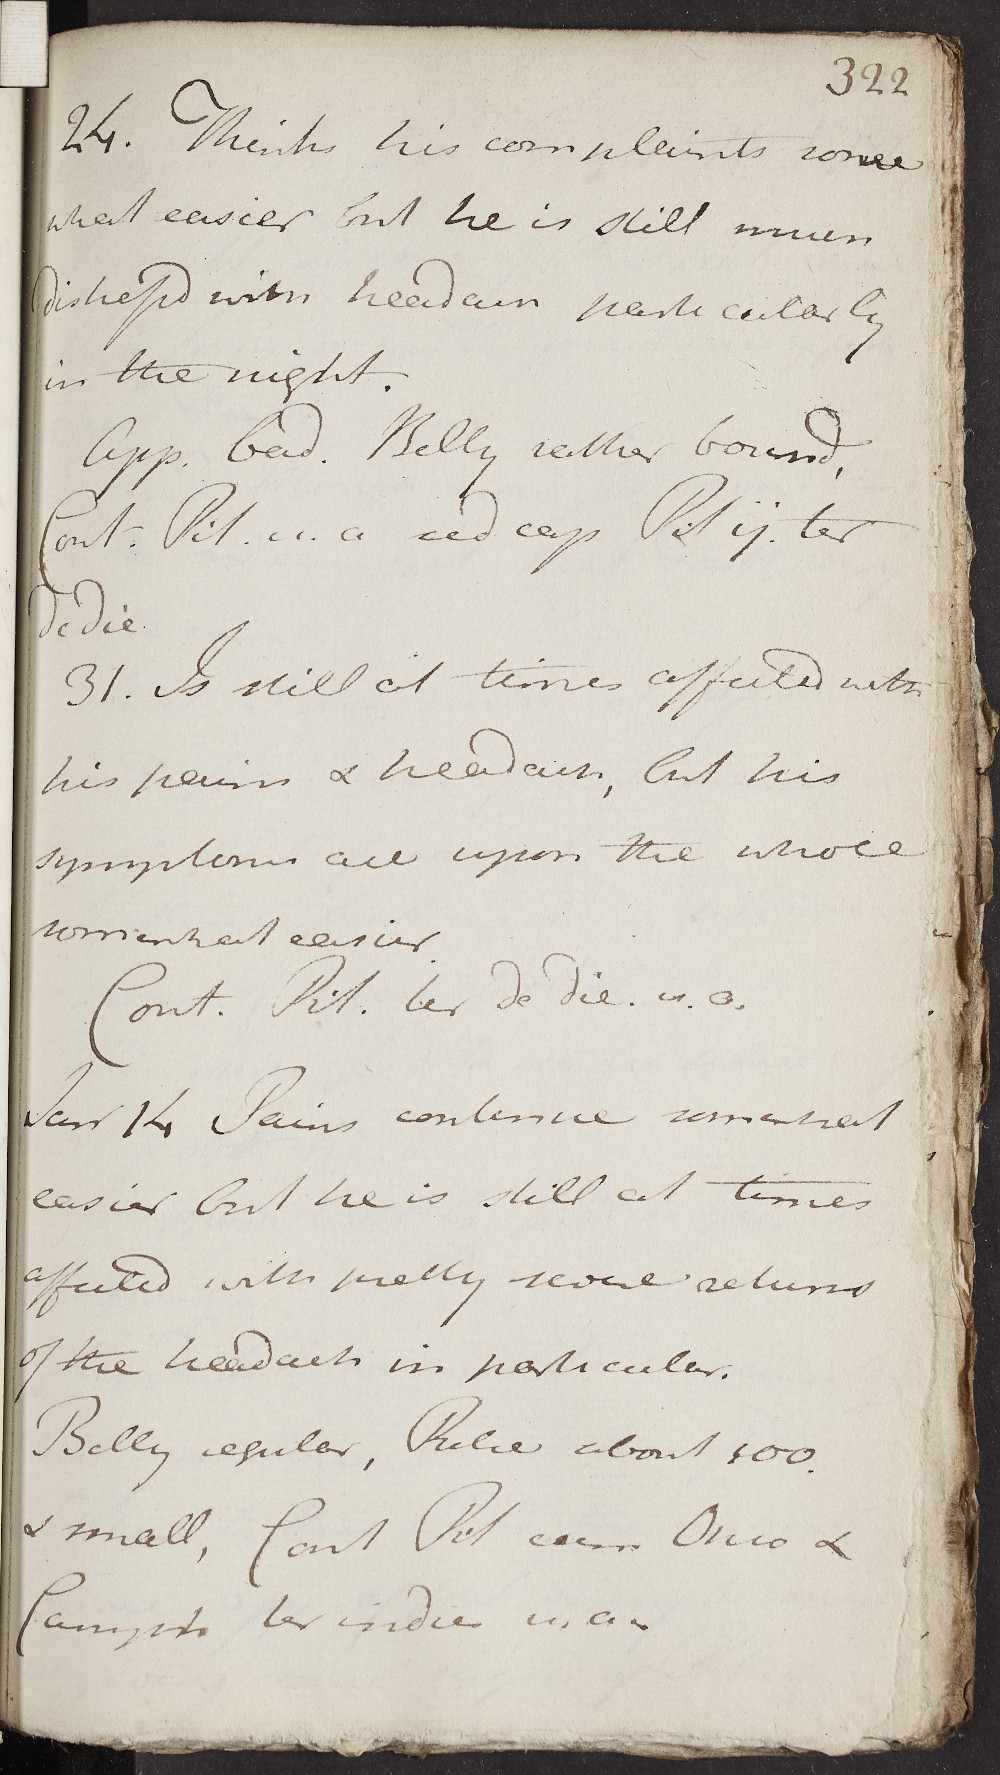 322
24. Thinks his complaints some
what easier but he is still much
distressd with headach particularly
in the night.
App. bad. Belly rather bound,
Cont. Pil. u. a sed cap Pil ij. ter
de die.
31. Is still at times affected with
his pains & headach, but his
symptoms are upon the whole
somewhat easier.
Cont. Pil. ter de die. u. a.
Jan 14 Pains continue somewhat
easier but he is still at times
affected with pretty severe returns
of the headach in particular.
Belly regular, Pulse about 100.
& small, Cont Pil cum Opio &
Camph ter indies u. a.